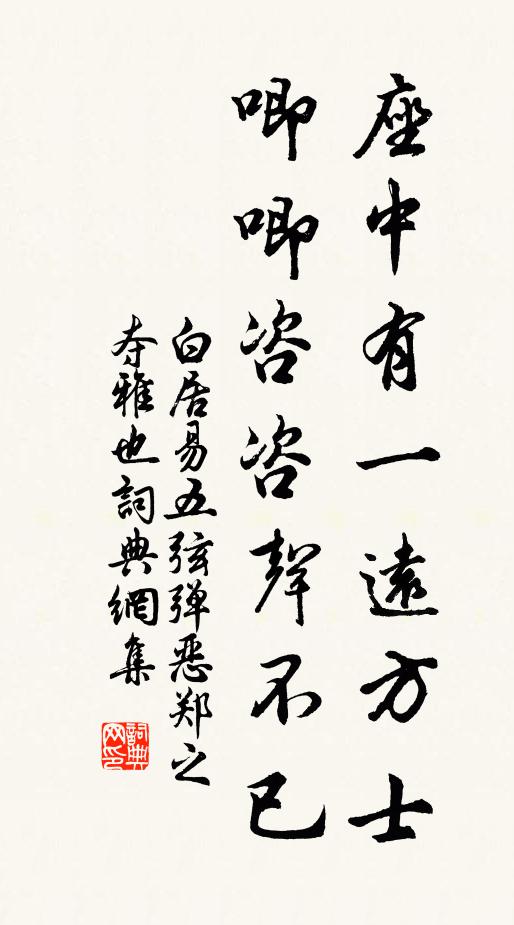 座中有一遠方士
唧唧咨咨聲不已
白居易五弦弹恶郑之
夺雅也詞典網集
詞典网印